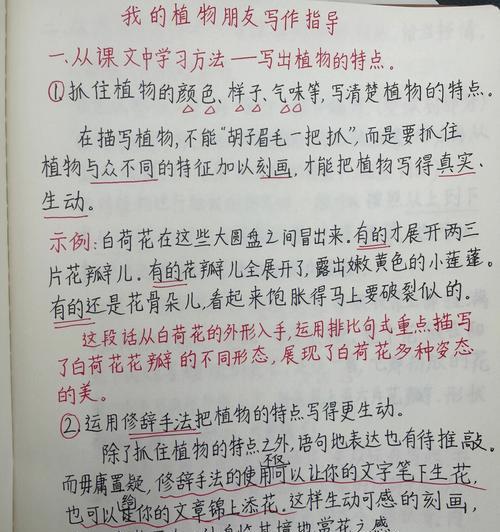 我的植物朋友写作指导
一、从课文中学习方法——写出植物的特点。
①抓住植物的颜色、样子、气味等,写清楚植物的特点。
在描写植物,不能“胡子眉毛一把抓”,而是要抓住
植物与众不同的特征加以刻画,才能把植物写得真实、
生动。
示例:白荷花在这些大圆盘之间冒出来.有的才展开两三
片花瓣儿.有的花瓣儿全展开了,露出嫩黄色的小莲蓬。
有的还是花骨朵儿,看起来饱胀得马上要破裂似的。
这段话从白荷花的外形入手,运用排比句式重点描写
了白荷花花瓣的不同形态,展现了白荷花多种姿态
的美。
②运用修辞手法把植物的特点写得更生动。
除了抓住植物的特点之外,语句地表达也有待推敲。
而毋庸置疑,修辞手法的使用不仅可以让你的文字笔下生花,
也可以给你的文章锦上添花。这样生动可感的刻画,